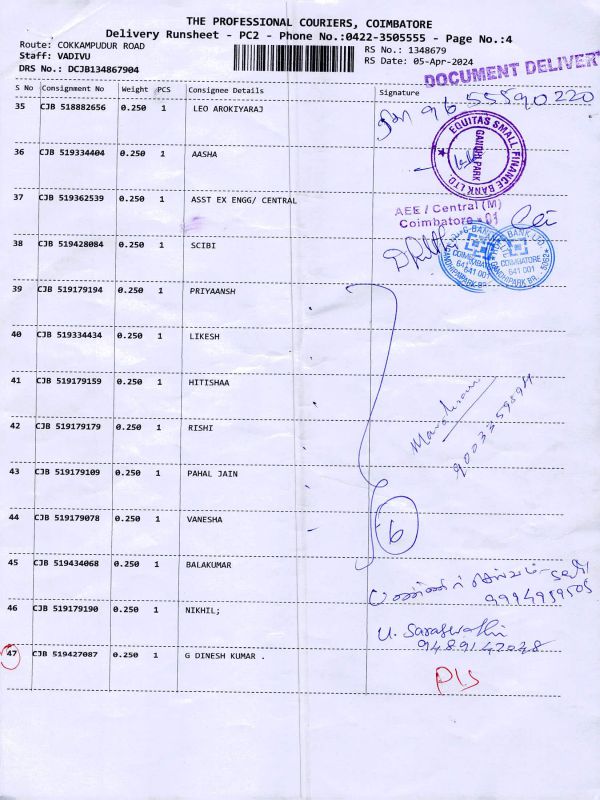 THE PROFESSIONAL COURIERS, COIMBATORE
Delivery Runsheet - PC2 - Phone No.:0422-3505555 - Page No.:4
Route: COKKAMPUDUR ROAD
Staff: VADIVU
DRS No.: DCJB134867904
RS No.: 1348679
RS Date: 05-Apr-2024
DOCUMENT DELIVER
S No Consignment No Weight PCS Consignee Details Signature
35 CJB 518882656 0.250 1 LEO AROKIYARAJ
EQUITAS SMALL FINANCE BANK LTD.
GANDHI PARK
36 CJB 519334404 0.250 1 AASHA
37 CJB 519362539 0.250 1 ASST EX ENGG/ CENTRAL
AEE / Central (M)
Coimbatore - 01
38 CJB 519428084 0.250 1 SCIBI
COIMBATORE
641 001
39 CJB 519179194 0.250 1 PRIYAANSH
40 CJB 519334434 0.250 1 LIKESH
41 CJB 519179159 0.250 1 HITISHAA
42 CJB 519179179 0.250 1 RISHI
43 CJB 519179109 0.250 1 PAHAL JAIN
44 CJB 519179078 0.250 1 VANESHA
6
45 CJB 519434068 0.250 1 BALAKUMAR
9994959505
46 CJB 519179190 0.250 1 NIKHIL;
U. Saraswathi
9489147048
47 CJB 519427087 0.250 1 G DINESH KUMAR .
P1s